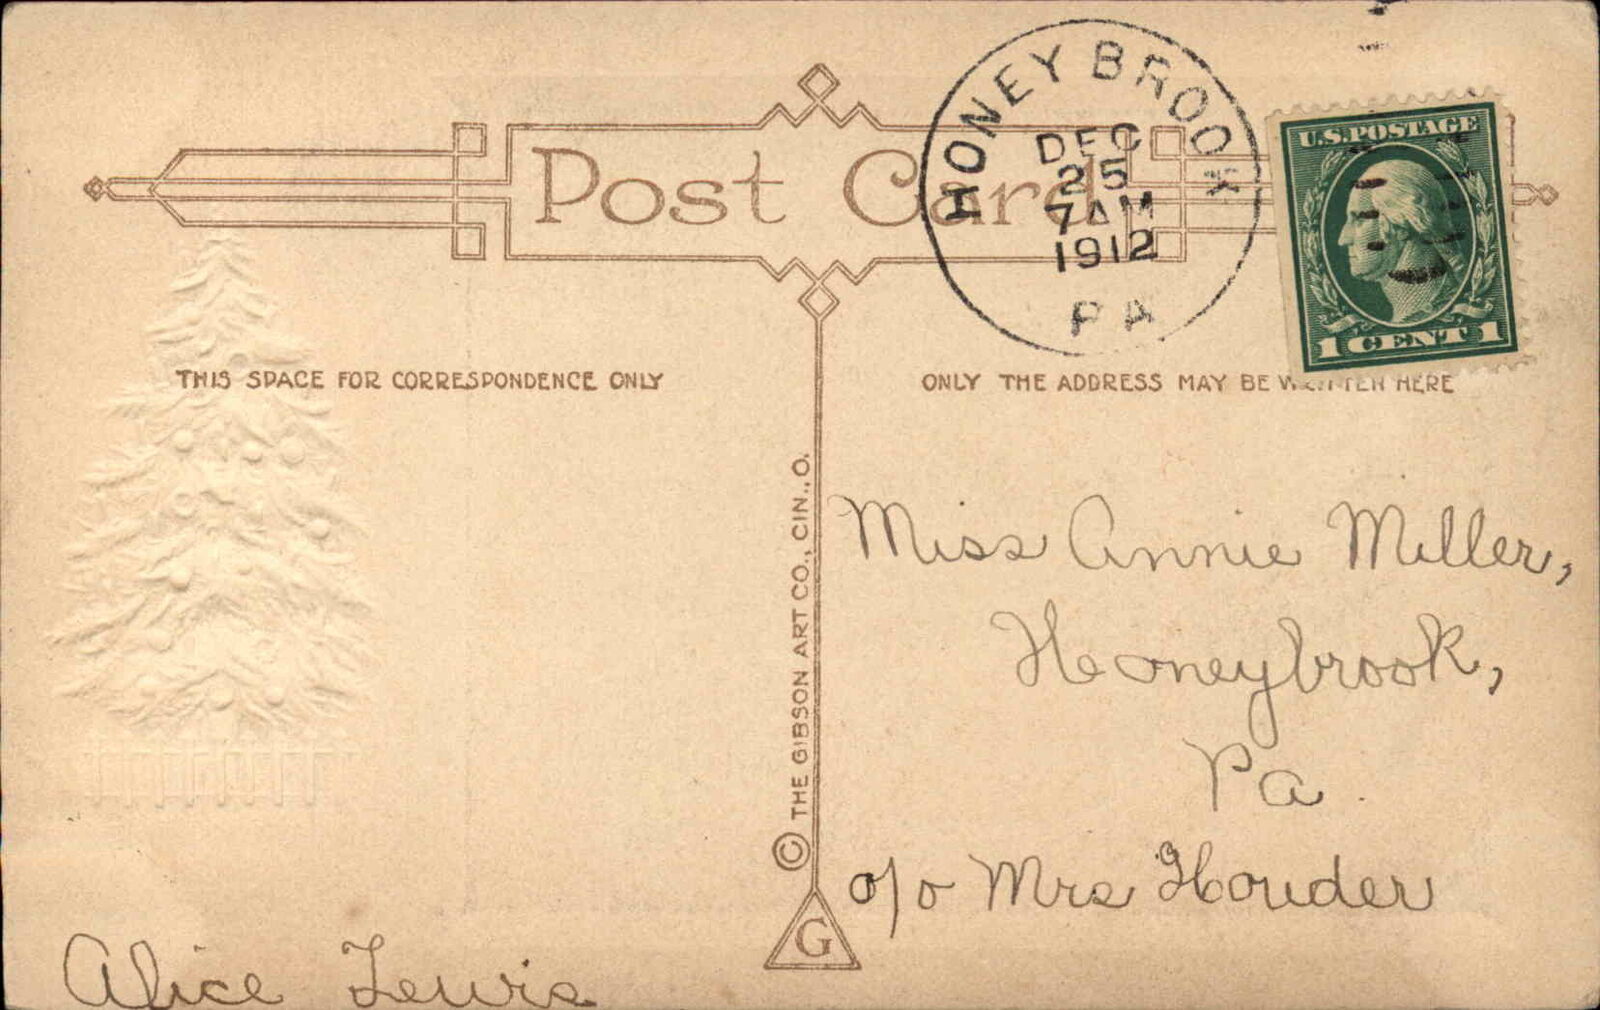 Post Card
HONEY BROOK
DEC
25
7 AM
1912
PA
U.S. POSTAGE
1 CENT 1
THIS SPACE FOR CORRESPONDENCE ONLY
ONLY THE ADDRESS MAY BE WRITTEN HERE
© THE GIBSON ART CO., CIN., O.
G
Miss Annie Miller,
Honeybrook,
Pa.
o/o Mrs
Alice Lewis